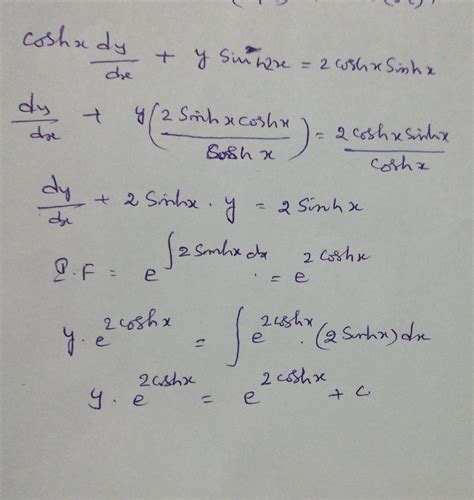 coshx dy/dx + y sinh2x = 2 coshx sinhx
dy/dx + y(2 sinhx coshx / coshx) = 2 coshx sinhx / coshx
dy/dx + 2 sinhx . y = 2 sinhx
I.F = e^∫2 sinhx dx = e^2 coshx
y . e^2coshx = ∫ e^2coshx . (2 sinhx) dx
y . e^2coshx = e^2coshx + c